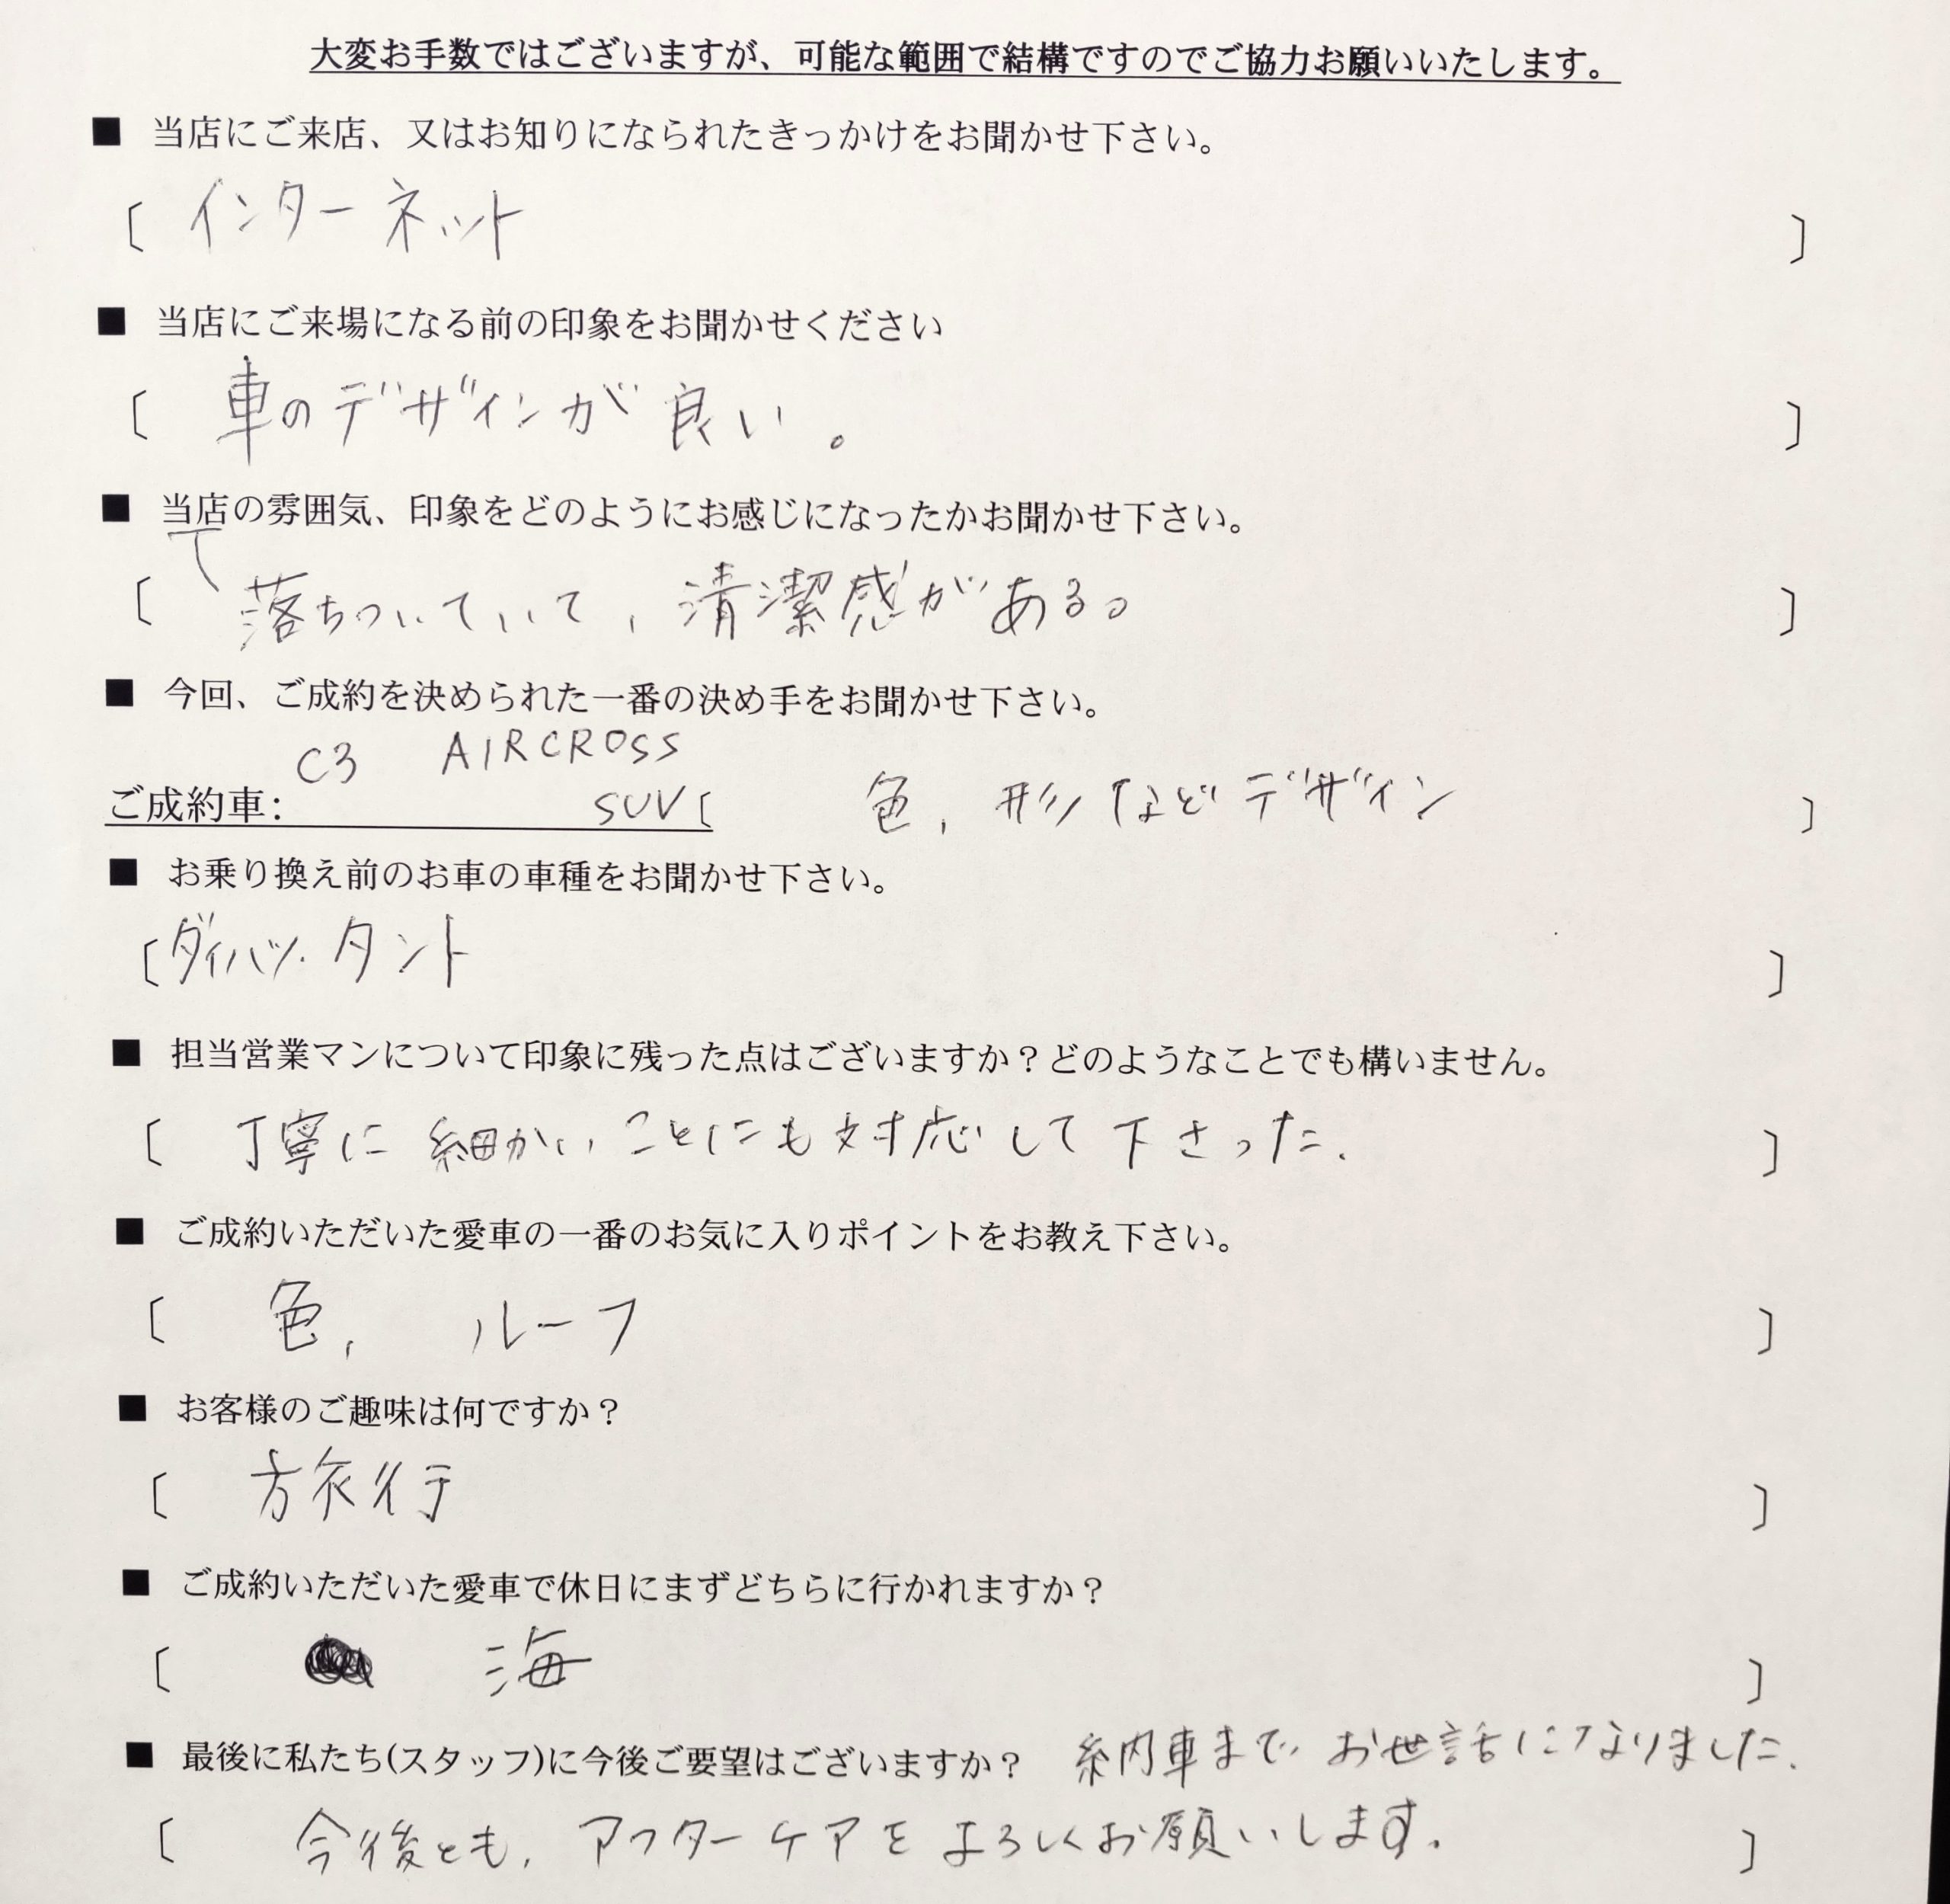 大変お手数ではございますが、可能な範囲で結構ですのでご協力お願いいたします。
■ 当店にご来店、又はお知りになられたきっかけをお聞かせ下さい。
〔 インターネット 〕
■ 当店にご来場になる前の印象をお聞かせください
〔 車のデザインが良い。 〕
■ 当店の雰囲気、印象をどのようにお感じになったかお聞かせ下さい。
〔 落ちついていて，清潔感がある。 〕
■ 今回、ご成約を決められた一番の決め手をお聞かせ下さい。
C3 AIRCROSS
ご成約車: SUV〔 色，形などデザイン 〕
■ お乗り換え前のお車の車種をお聞かせ下さい。
〔ダイハツ・タント 〕
■ 担当営業マンについて印象に残った点はございますか？どのようなことでも構いません。
〔 丁寧に細かいことにも対応して下さった. 〕
■ ご成約いただいた愛車の一番のお気に入りポイントをお教え下さい。
〔 色， ルーフ 〕
■ お客様のご趣味は何ですか？
〔 旅行 〕
■ ご成約いただいた愛車で休日にまずどちらに行かれますか？
〔 海 〕
■ 最後に私たち(スタッフ)に今後ご要望はございますか？ 納車まで お世話になりました.
〔 今後とも，アフターケアをよろしくお願いします. 〕